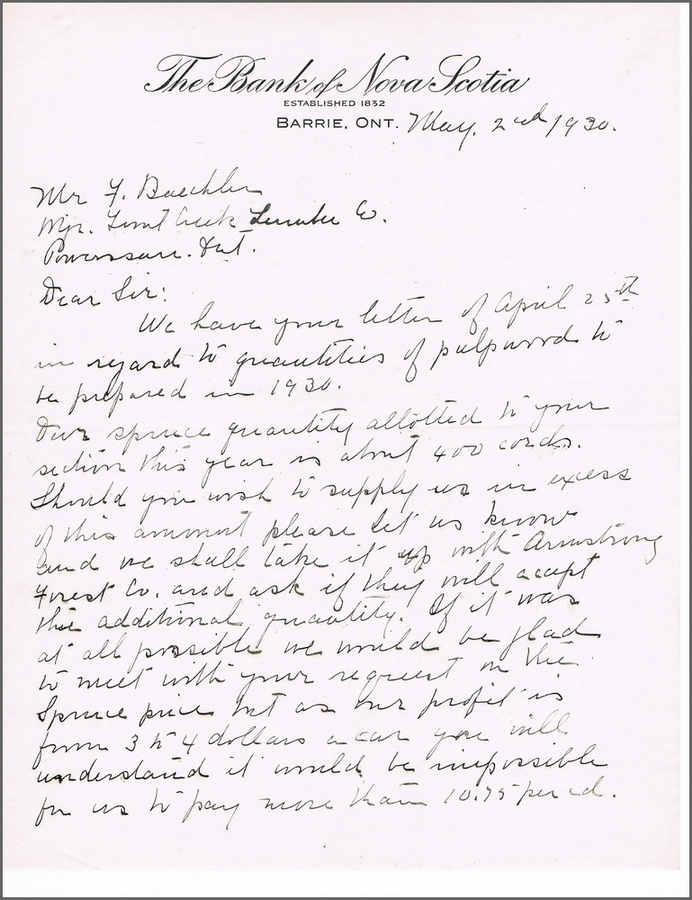 The Bank of Nova Scotia
ESTABLISHED 1832
BARRIE, ONT. May. 2nd 1930.
Mr F. Baechler
Mgr. Trout Creek Lumber Co.
Powassan. Ont.
Dear Sir:
We have your letter of April 25th
in regard to quantities of pulpwood to
be prepared in 1930.
Our spruce quantity allotted to your
section this year is about 400 cords.
Should you wish to supply us in excess
of this amount please let us know
and we shall take it up with Armstrong
Forest Co. and ask if they will accept
this additional quantity. If it was
at all possible we would be glad
to meet with your request on the
Spruce price but as our profit is
from 3 to 4 dollars a car you will
understand it would be impossible
for us to pay more than 10.75 per cd.